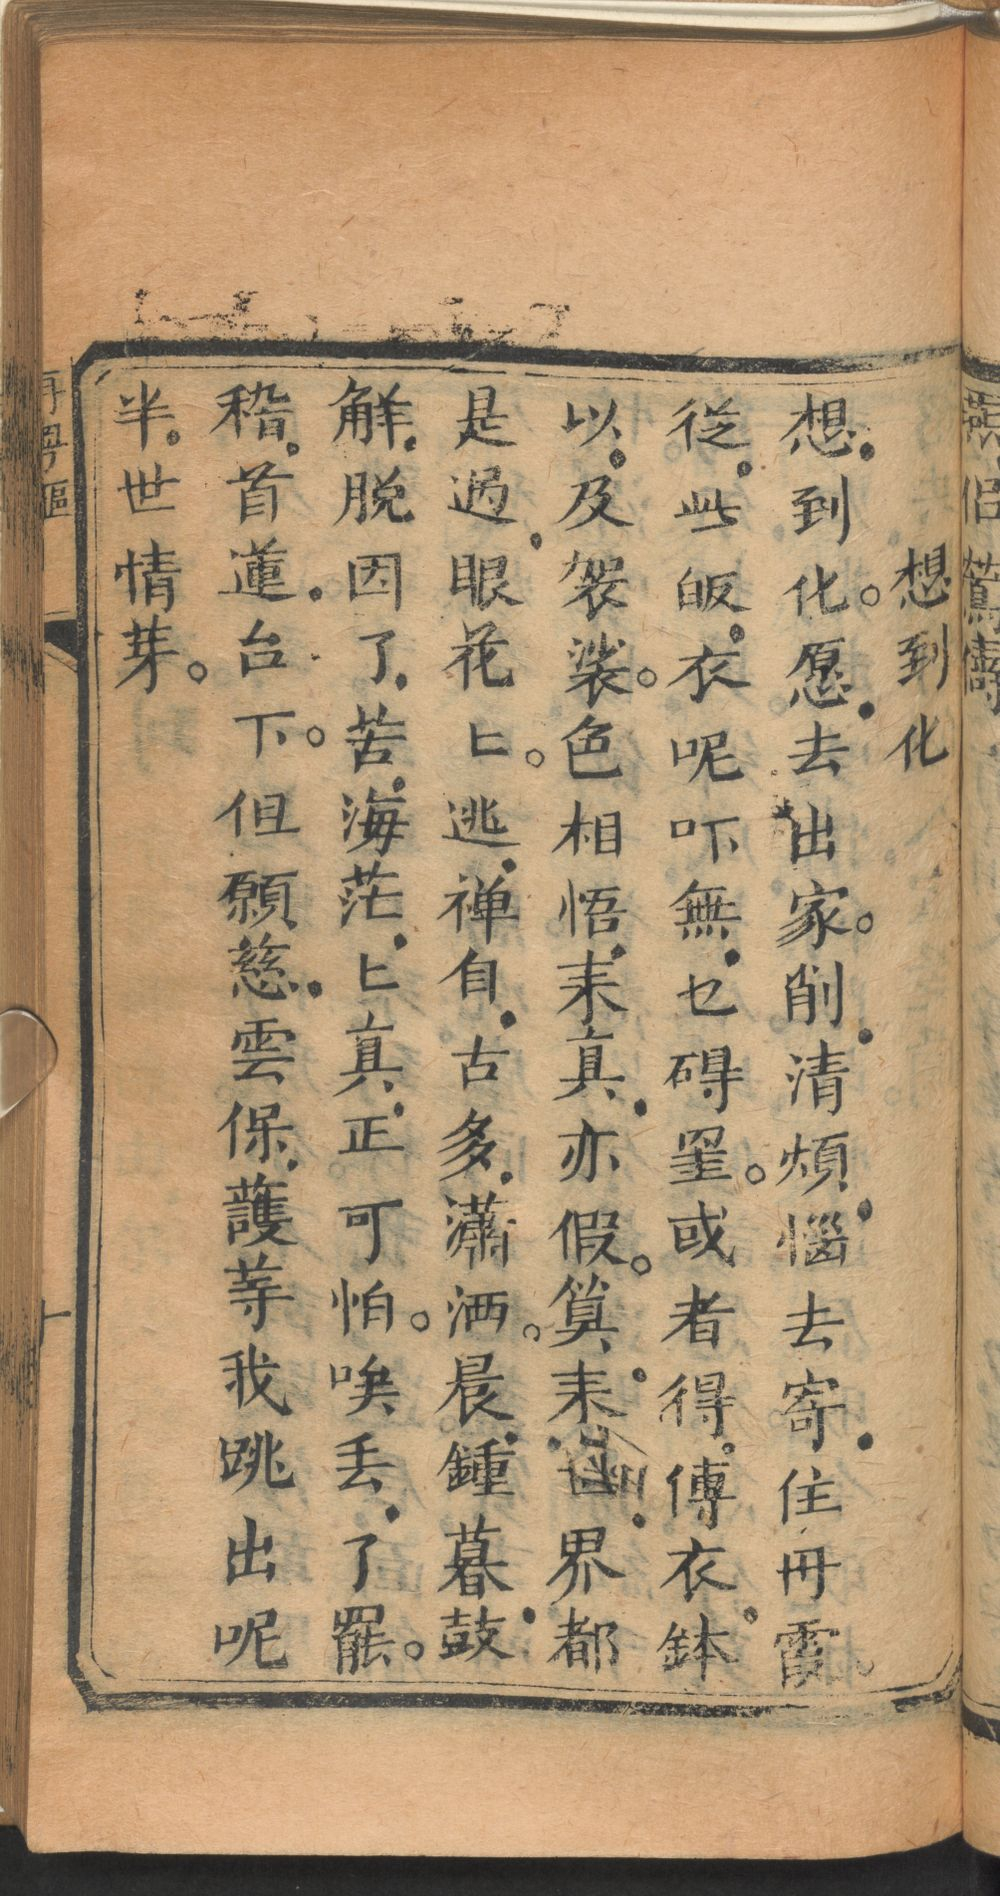 想到化
想到化。愿去出家。削清煩惱去寄住冊霞。
從此皈衣呢吓無乜碍罣。或者得傳衣鉢
以及袈裟。色相悟来真亦假。算来世界都
是過眼花〻。逃禅自古多瀟洒。晨鍾暮鼓
解脱因了苦海茫〻真正可怕。唉丢了罷。
稽首蓮台下。但願慈雲保護等我跳出呢
半世情芽。
再粤謳
十
燕侣鴛儔